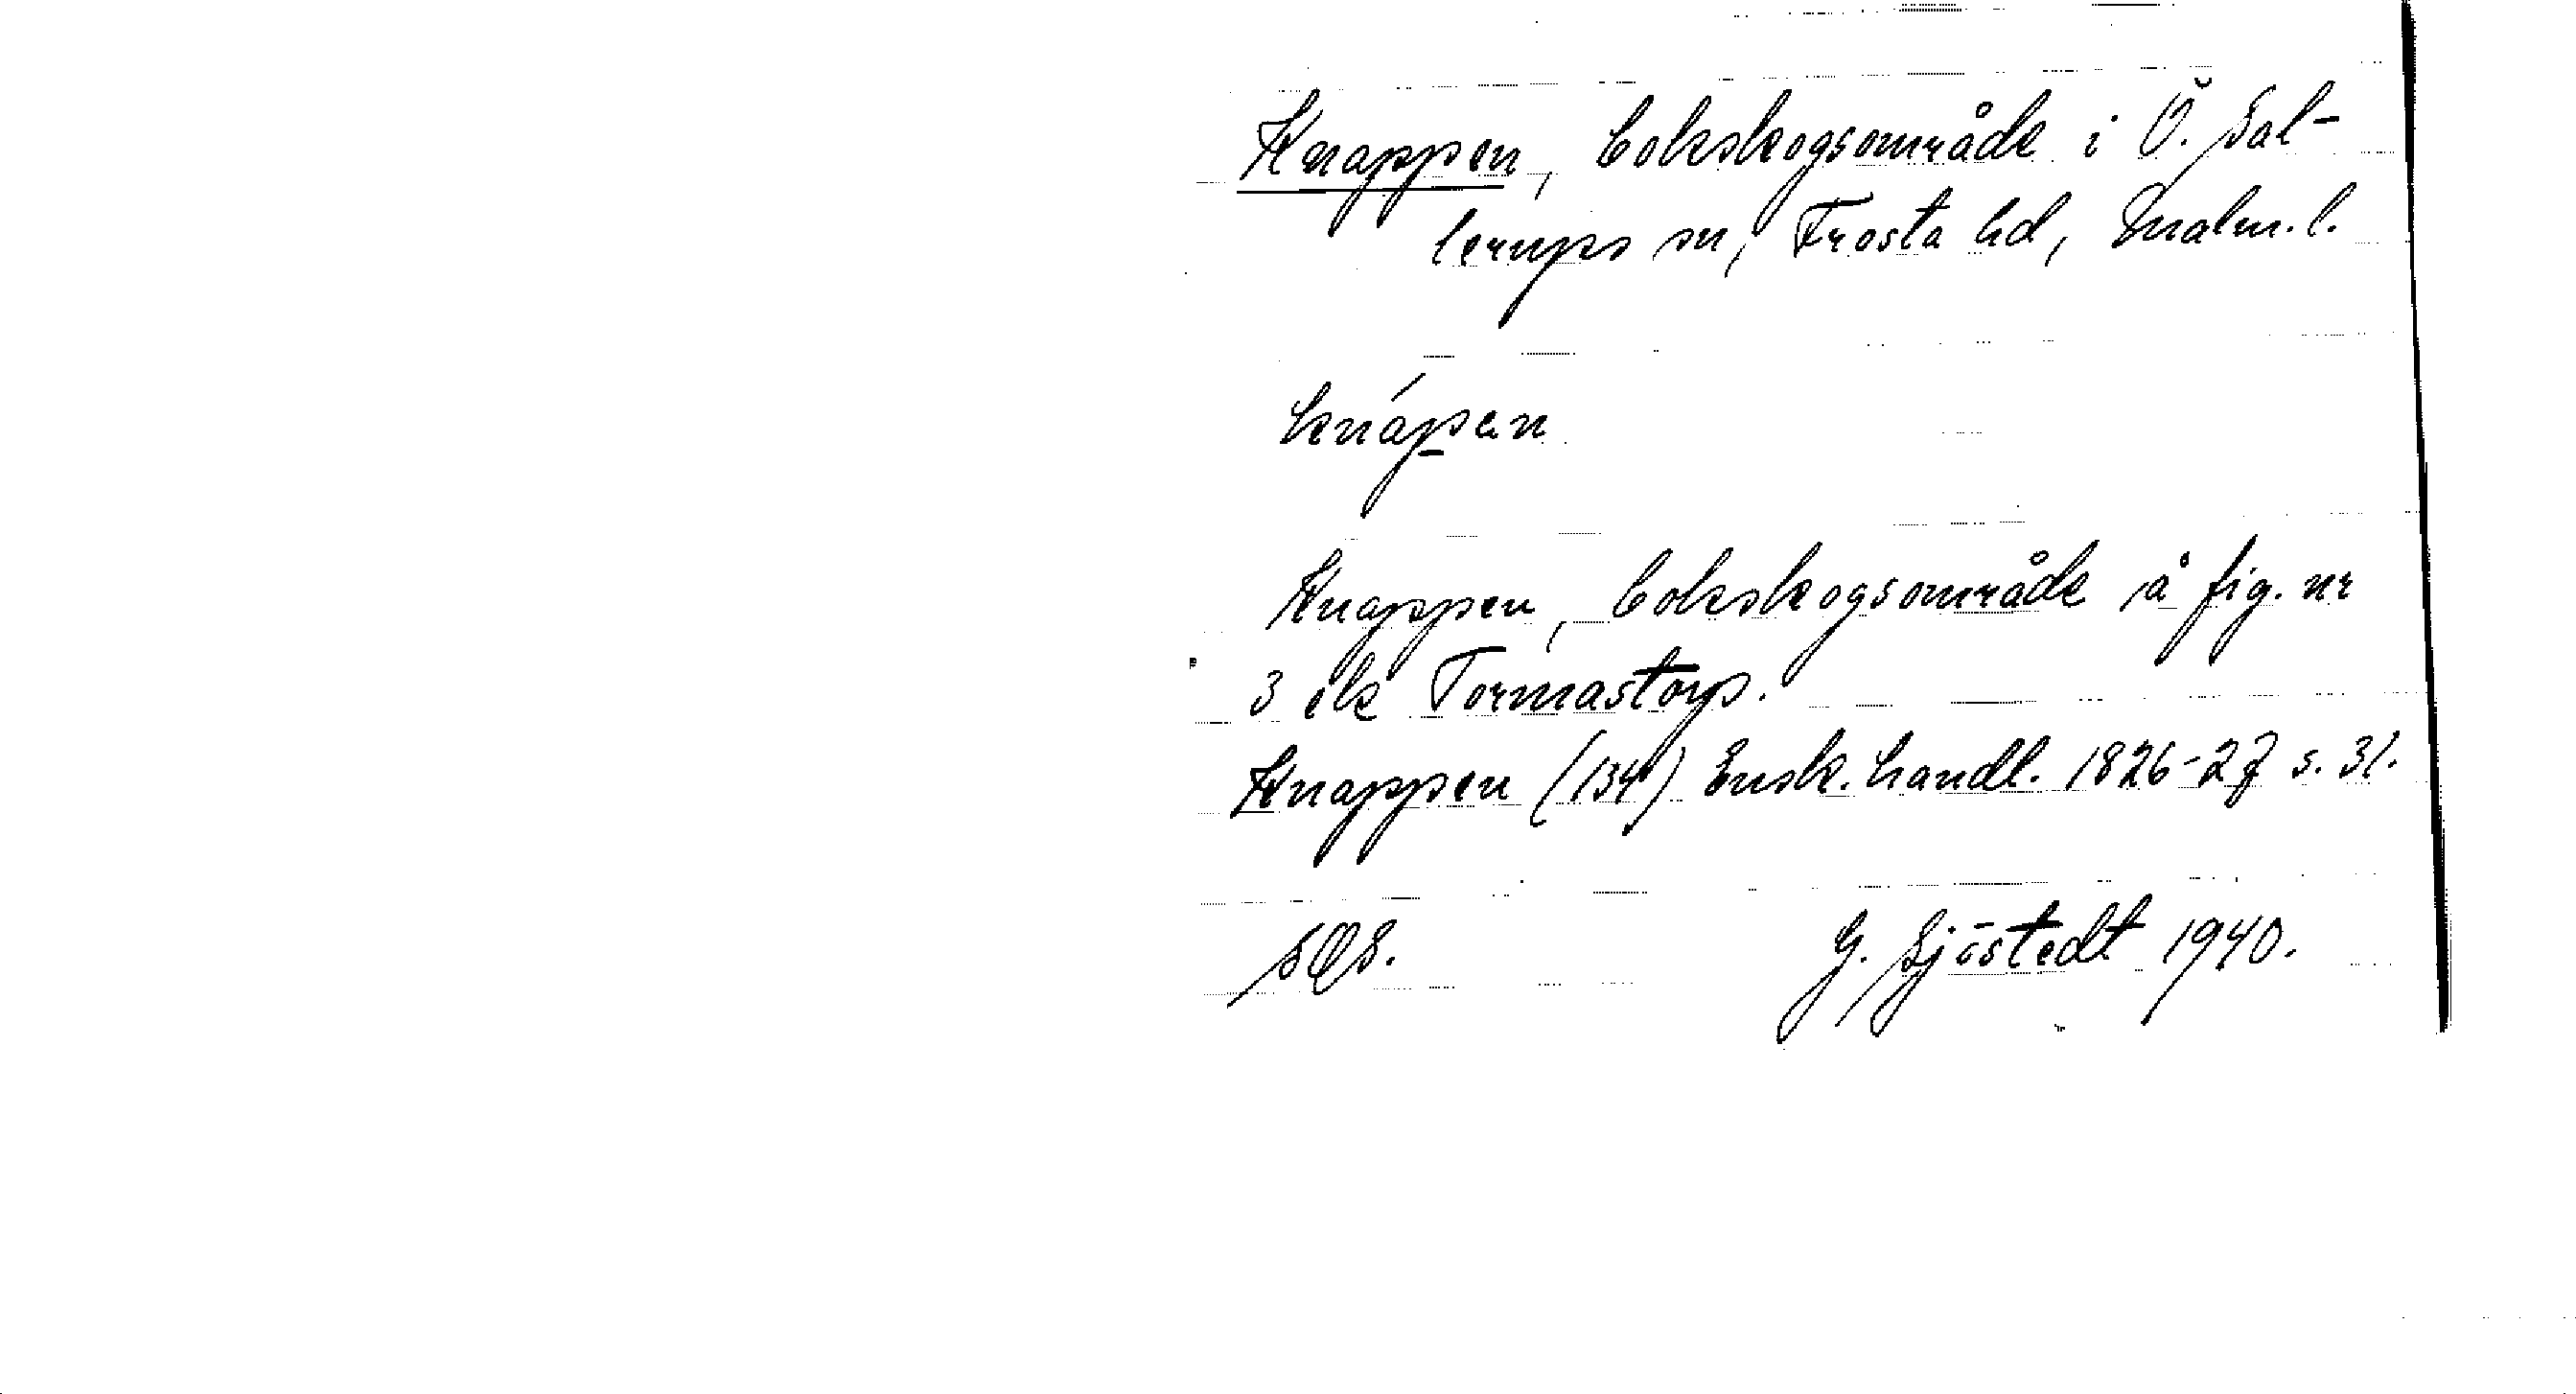 Knappen, bokskogsområde i Ö. Sal-
lerups sn, Frosta hd, Malm. l.
knápen
Knappen, bokskogsområde å fig. nr
3 ek Tormastorp.
Knappen (134) Ensk. handl. 1826-27 s. 31.
SOS.
G. Sjöstedt 1940.